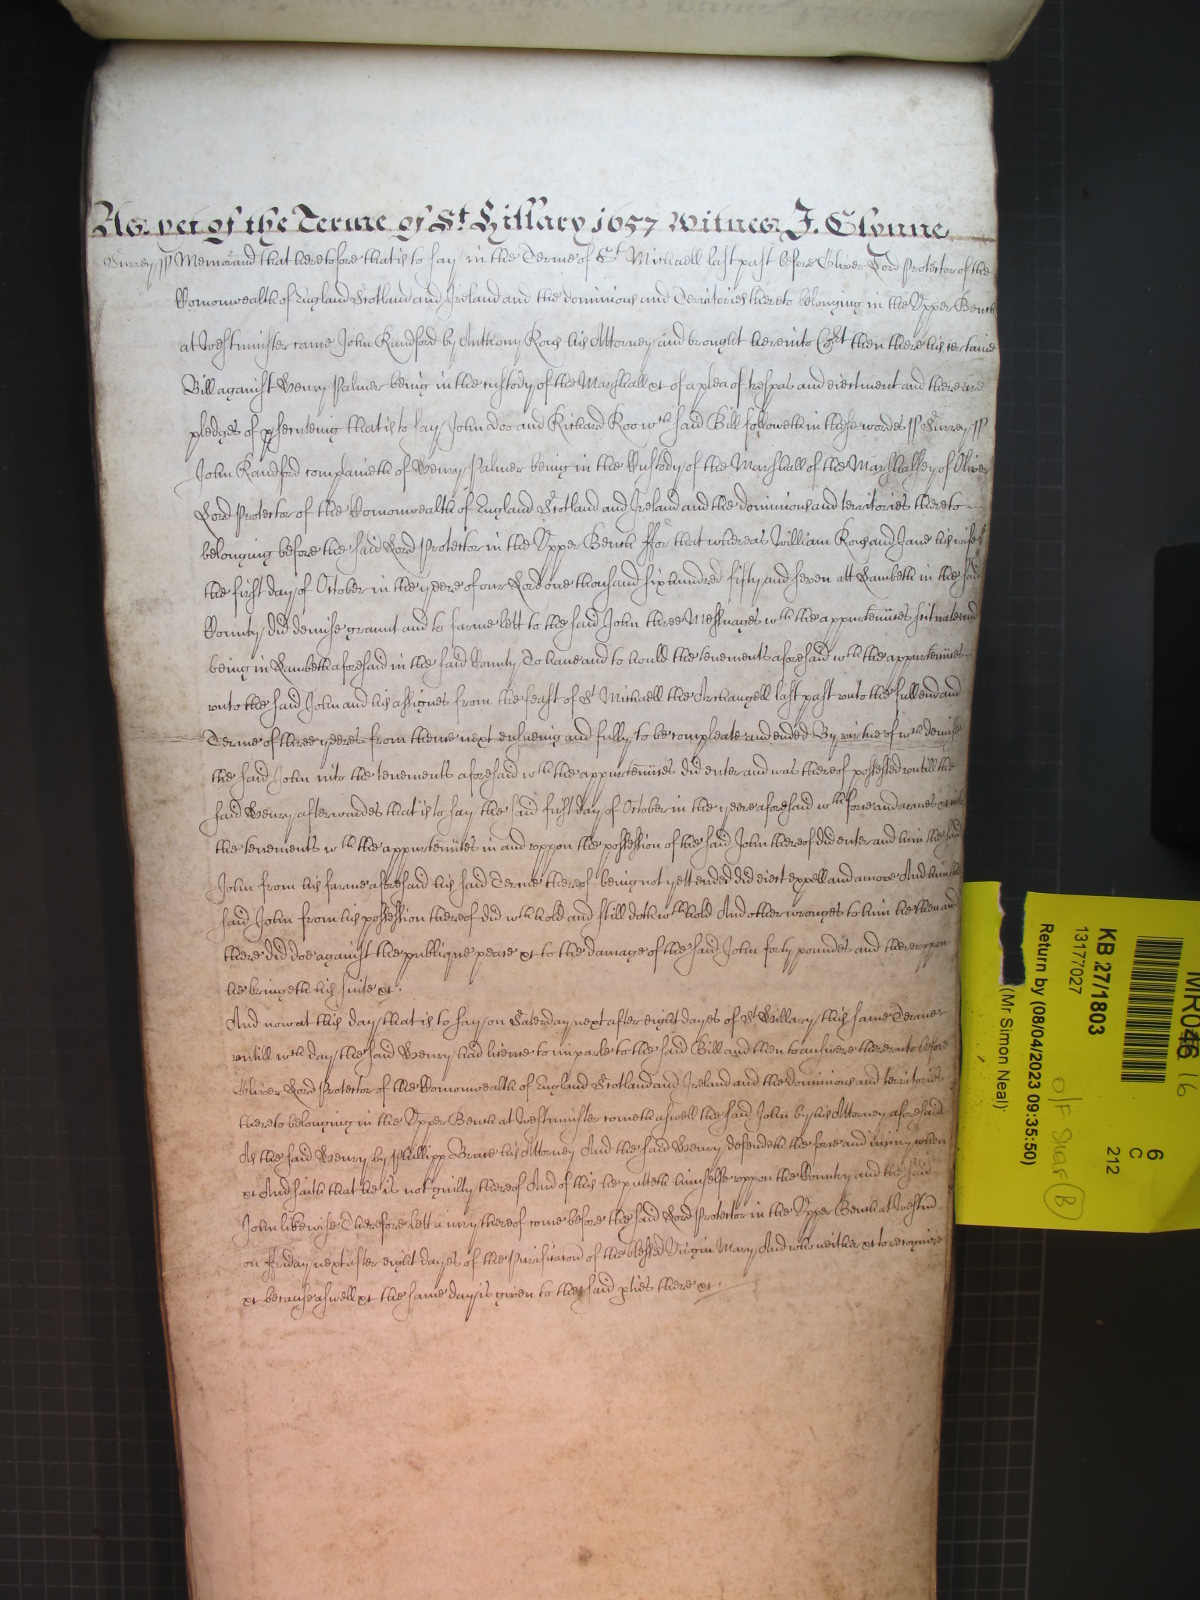 As yet of the Terme of St Hillary 1657 Witnes J. Glynne
Surrey ss Memorand that heretofore that is to say in the Terme of St Michaell last past before Oliver Lord Protector of the
Comonwealth of England Scotland and Ireland and the dominions and Territories thereto belonging in the Upper Bench
at Westminster came John Randford by Anthony Rous his Attorney and brought here into Cort then there his certaine
Bill against Henry Palmer being in the custody of the Marshall &c of a plea of trespas and eiectment and there are
pledges of psecuteing that is to say John Doo and Richard Roo wch said Bill followeth in these wordes ss Surrey ss
John Randford complaineth of Henry Palmer being in the Custody of the Marshall of the Marshalsey of Oliver
Lord Protector of the Comonwealth of England Scotland and Ireland and the dominions and territories thereto
belonging before the said Lord Protector in the Upper Bench ffor that whereas William Rous and Jane his wife
the first day of October in the yeere of our Lord one thousand six hundred fifty and seven att Lambeth in the said
County did demise graunt and to farme lett to the said John three Messuages wth the appurtennces scituate and
being in Lambeth aforesaid in the said County To have and to hould the tenements aforesaid wth the appurtennces
unto the said John and his assignes from the feast of St Michaell the Archangell last past unto the full end and
Terme of three yeeres from thence next ensueing and fully to be compleate and ended By virtue of wch demise
the said John into the tenements aforesaid wth the appurtennces did enter and was thereof possessed untill the
said Henry afterwardes that is to say the said first day of October in the yeere aforesaid wth force and armes &c into
the tenements wth the appurtennces in and uppon the possession of the said John thereof did enter and him the said
John from his farme aforesaid his said Terme thereof being not yett ended did eiect expell and amove And him the
said John from his possession thereof did wthhold and still doth wthhold And other wronges to him he then and
there did doe against the publique peace &c to the damage of the said John forty poundes and thereuppon
he bringeth his suite &c.
And now at this day that is to say on Saterday next after eight dayes of St Hillary this same Terme
untill wch day the said Henry had licence to imparle to the said Bill and then to answere thereunto before
Oliver Lord Protector of the Comonwealth of England Scotland and Ireland and the dominions and territories
thereto belonging in the Upper Bench at Westminster cometh aswell the said John by his Attorney aforesaid
As the said Henry by Phillipp Brace his Attorney And the said Henry defendeth the force and iniury when
&c And saith that he is not guilty thereof And of this he putteth himselfe uppon the Country and the said
John likewise Therefore lett a iury thereof come before the said Lord Protector in the Upper Bench at Westmr
on ffriday next after eight dayes of the Purificacon of the blessed Virgin Mary And who neither &c to recognize
&c because aswell &c the same day is given to the said pties there &c.
MR046 16
KB 27/1803
13177027
Return by (08/04/2023 09:35:50)
(Mr Simon Neal)
6
C
212
O/F Shelf B